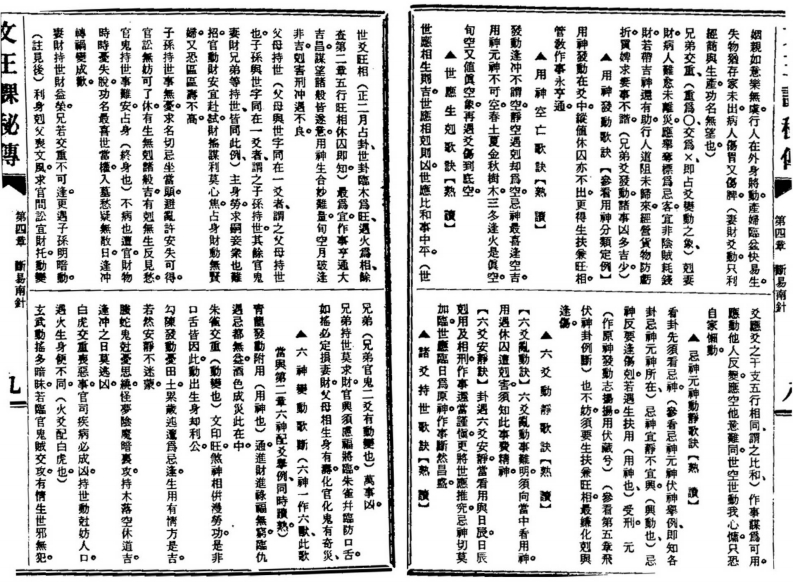 姻親如意樂無壤行人在外身將動產婦臨盆快易生。
失物猶存家未出病人傷胃又傷脾(妻財爻動只利
經商與生產功名無望也)
兄弟交重(重爲〇交爲×即占爻變動之象)剋妻
財病人難愈未離災應舉奪標爲忌客宜非陰賊耗錢
財若帶吉神還有助行人道阻未歸來經營貨物防虧
折買婢求妻事不諧(兄弟爻發動諸事凶多吉少)
▲用神發動歌訣【參看用神分類定例】
用神發動在爻中縱值休囚亦不凶更得生扶兼旺相
管敎作事永亨通
▲用神空亡歌訣【熟 讀】
發動逢冲不謂空靜空遇剋却爲空忌神最喜逢空吉
用神元神不可空春土夏金秋樹木三冬逢火是眞空
旬空又值眞空象再遇爻傷到底空
▲世應生剋歌訣【熟 讀】
世應相生則吉世應相剋則凶世應比和事中平(世
爻應爻之干支五行相同謂之比和)作事謀爲可用
應動他人反變應空他意難同世空世動我心慵只恐
自家懶動
▲忌神元神動靜歌訣【熟 讀】
看卦先須看忌神(參看忌神元神伏神舉例即知各
卦忌神元神所在)忌神宜靜不宜興(興動也)忌
神反要逢傷剋若遇生扶用(用神也)受刑 元
(作原神發動志揚揚用伏藏兮)(參看第五章飛
伏神卦例斷)也不妨須要生扶兼旺相最嫌化剋與
逢傷
▲六爻動靜歌訣【熟 讀】
【六爻亂動訣】六爻亂動事難明須向當中看用神
用遇休囚遭剋害須知此事費精神
【六爻安靜訣】卦遇六爻安靜當看用與日辰日辰
剋用及相刑作事還當謹愼更將世應推究忌神切莫
加臨世應臨日爲原神作事斷然昌盛
▲諸爻持世歌訣【熟 讀】
第四章 斷易南針
八
世爻旺相(正二月占卦世卦臨木爲旺遇火爲相餘
查第二章五行旺相休囚即知)最爲宜作事亨通大
吉昌謀望諸般皆遂意用神生合妙難量旬空月破逢
非吉剋害刑冲遇不良
父母持世(父母與世字同在一爻者謂之父母持世
也子孫與世字同在一爻者謂之子孫持世其餘官鬼
妻財兄弟等持世皆同此例)主身勞求嗣妾衆也難
招官動財安宜赴試財搖謀利莫心焦占身財動無賢
婦又恐區區壽不高
子孫持世事無憂求名切忌坐當頭避亂許安失可得
官訟無妨可了休有生無剋諸般吉有剋無生反見愁
官鬼持世事難安占身(終身也)不病也遭官財物
時時憂失脫功名最喜世當權入墓愁疑無散日逢冲
轉禍變成歡
妻財持世財益榮兄若交重不可逢更遇子孫明暗動
(註見後)利身剋父喪文風求官問訟宜財托動變
兄弟(兄弟官鬼二爻有動變也)萬事凶
兄弟持世莫求財官興須慮禍將臨朱雀幷臨防口舌
如搖必定損妻財父母相生身有壽化官化鬼有奇災
▲六神變動歌斷(六神一作六獸此歌
當與第二章六神配爻舉例同時讀熟)
靑龍發動附用(用神也)通進財進祿福無窮臨仇
遇忌都無益酒色成災此在中
朱雀交重(動變也)文印旺煞神相併漫勞功是非
口舌皆因此動出生身却利公
勾陳發動憂田土累歲迍邅爲忌逢生用有情方是吉
若然安靜不迷蒙
騰蛇鬼尅憂思繞怪夢陰魔暗裏攻持木落空休道吉
逢冲之日莫逃凶
白虎交重喪惡事官司疾病必成凶持世動尅妨人口
遇火生身便不同(火爻配白虎也)
玄武動搖多暗昧若臨官鬼賊交攻有情生世邪無犯
文王課秘傳
第四章 斷易南針
九